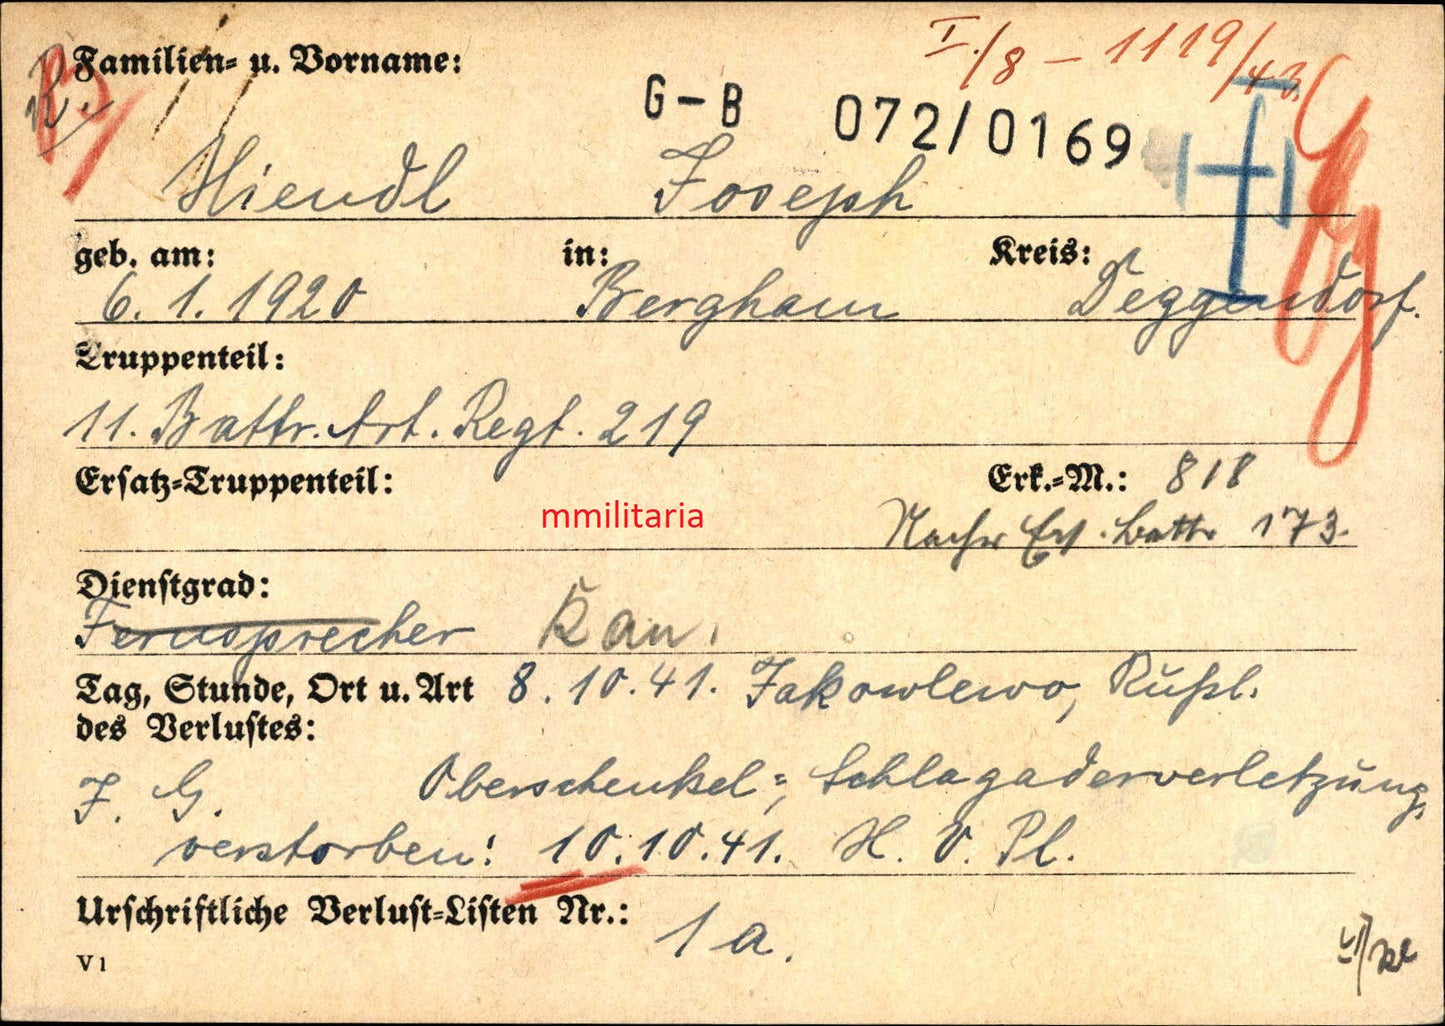 I./8 – 1119/43.
Familien- u. Vorname:
R.
G–B 072/0169
Hiendl Joseph
geb. am: in: Kreis:
6. 1. 1920 Bergham Deggendorf.
Truppenteil:
11. Battr. Art. Regt. 219
Ersatz-Truppenteil: Erk.-M.: 818
mmilitaria
Nachr Ers. Battr 173.
Dienstgrad:
Fernsprecher Kan.
Tag, Stunde, Ort u. Art 8. 10. 41. Jakowlewo, Rußl.
des Verlustes:
J. G. Oberschenkel=, Schlagaderverletzung,
verstorben: 10. 10. 41. H. V. Pl.
Urschriftliche Verlust-Listen Nr.:
1 a.
V 1